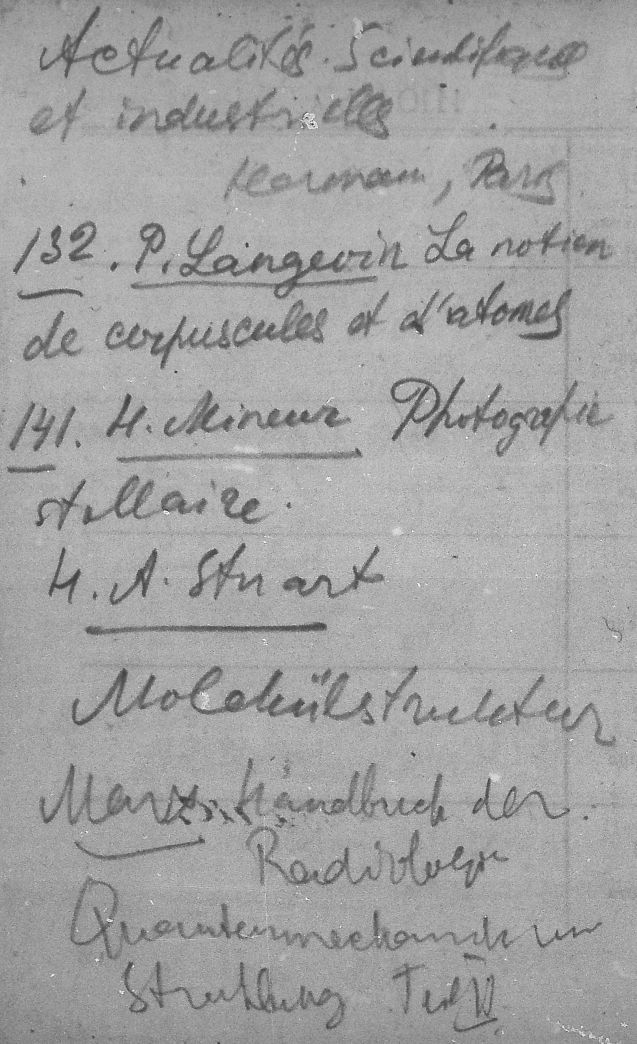 Actualités Scientifique
et industrielles
Hermann, Paris
132. P. Langevin La notion
de corpuscules et d'atomes
141. H. Mineur Photografie
stellaire.
H. A. Stuart
Molekülstruktur
Marx. Handbuch der
Radiologie
Quantenmechanik un
Strahlung Teil II